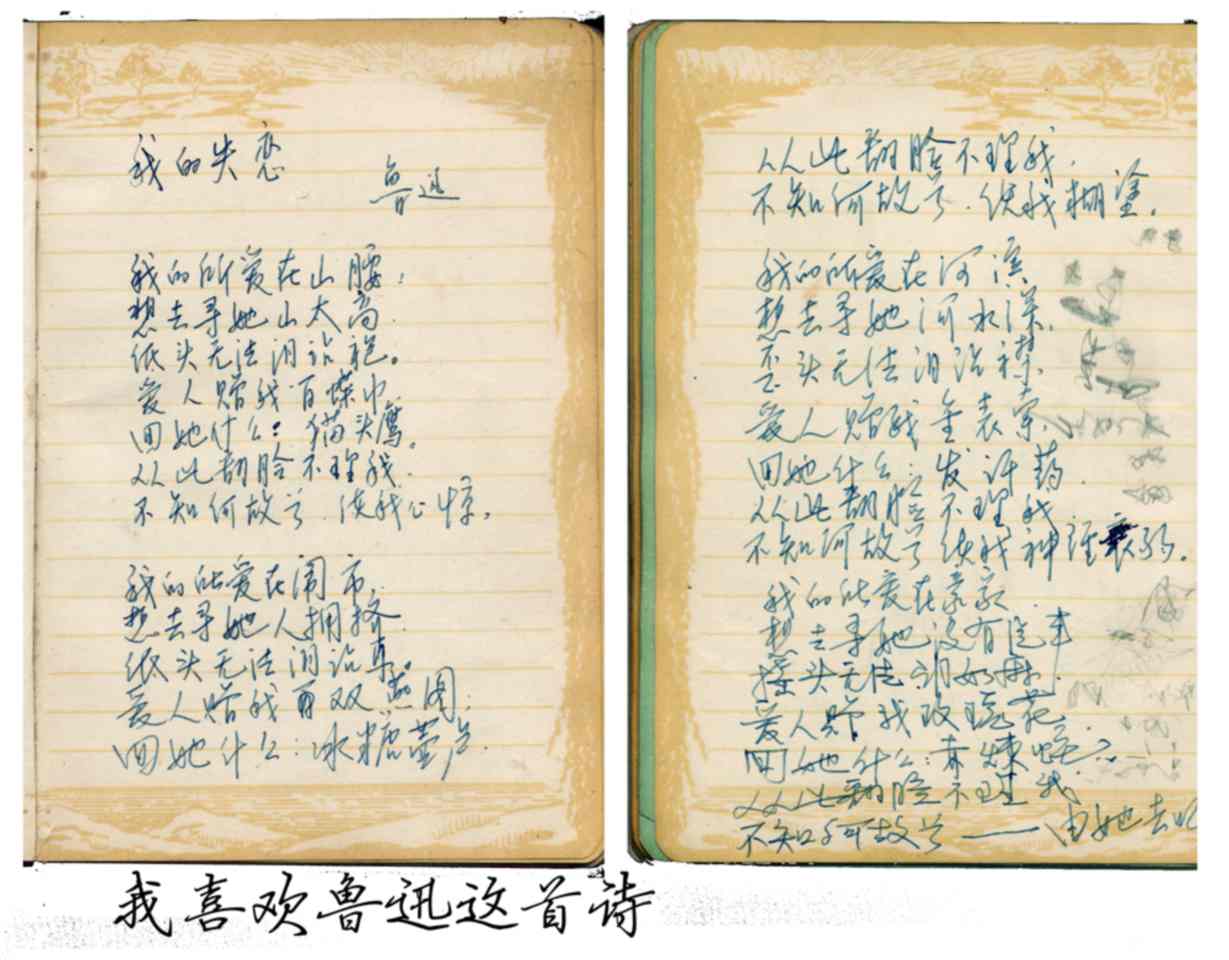 我的失恋
鲁迅
我的所爱在山腰；
想去寻她山太高
低头无法泪沾袍。
爱人赠我百蝶巾
回她什么：猫头鹰。
从此翻脸不理我
不知何故兮 使我心惊。
我的所爱在闹市，
想去寻她人拥挤
低头无法泪沾耳。
爱人赠我 双燕图；
回她什么：冰糖葫芦
从此翻脸不理我，
不知何故兮．使我糊塗。
我的所爱在河滨
想去寻她河水深，
歪头无法泪沾襟
爱人赠我金表索，
回她什么：发汗药
从此翻脸不理我
不知何故兮使我神经衰弱。
我的所爱在豪家
想去寻她没有汽车
摇头无法泪如麻
爱人赠我玫瑰花
回她什么：赤煉蛇
从此翻脸不理我
不知何故兮——由她去吧
我喜欢鲁迅这首诗